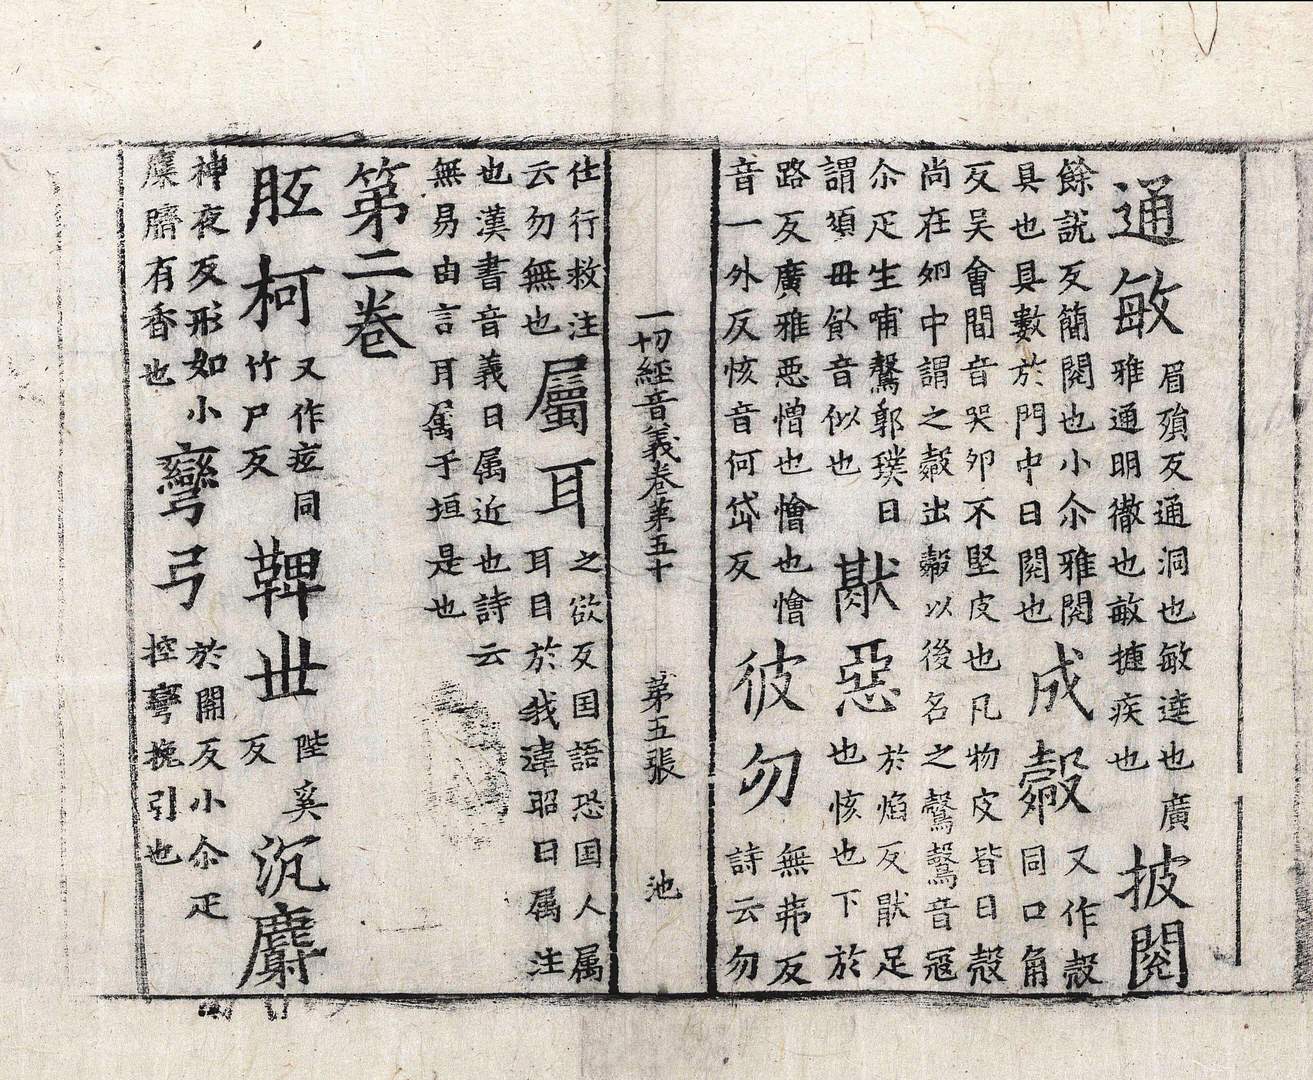 通敏
眉殞反通洞也敏達也廣
雅通明徹也敏揵疾也
披閱
餘説反簡閱也小尒雅閱
具也具數於門中曰閱也
成㲉
又作殻
同口角
反吳會間音哭夘不堅皮也凡物皮皆曰殻
尚在如中謂之㲉出㲉以後名之鷇鷇音冦
尒疋生哺鷇郭璞曰
謂須毋飤音似也
猒惡
於焰反猒足
也恢也下於
路反廣雅惡憎也憎也憎
音一外反恢音何岱反
彼勿
無弗反
詩云勿
一切經音義卷第五十 第五張 池
仕行救注
云勿無也
屬耳
之欲反国語恐国人属
耳目於我韋昭曰属注
也漢書音義曰属近也詩云
無易由言耳属于垣是也
第二卷
胝柯
又作㾄同
竹尸反
鞞丗
陛奚
反
沉麝
神夜反形如小
麋臍有香也
彎弓
於關反小尒疋
控彎挽引也